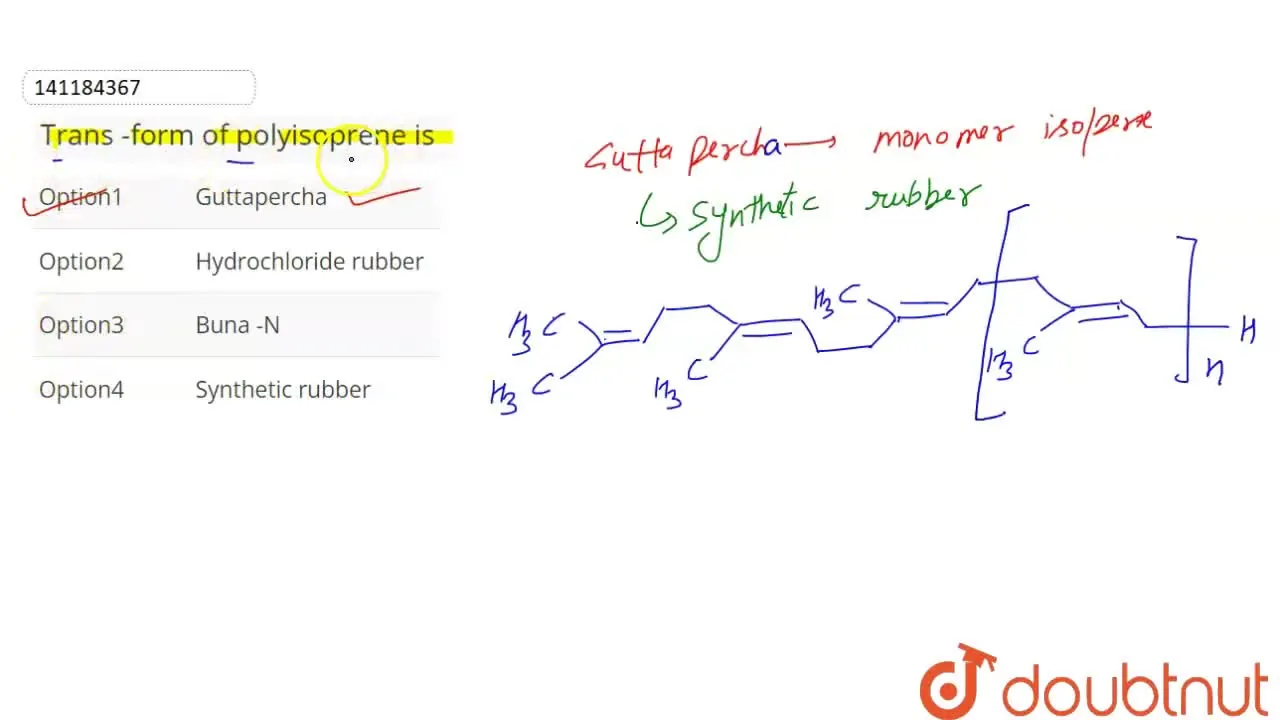 141184367
Trans -form of polyisoprene is
Option1 Guttapercha
Option2 Hydrochloride rubber
Option3 Buna -N
Option4 Synthetic rubber
Gutta percha → monomer isoprene
↳ synthetic rubber
H3C
H3C
H3C
H3C
H3C
H
n
doubtnut